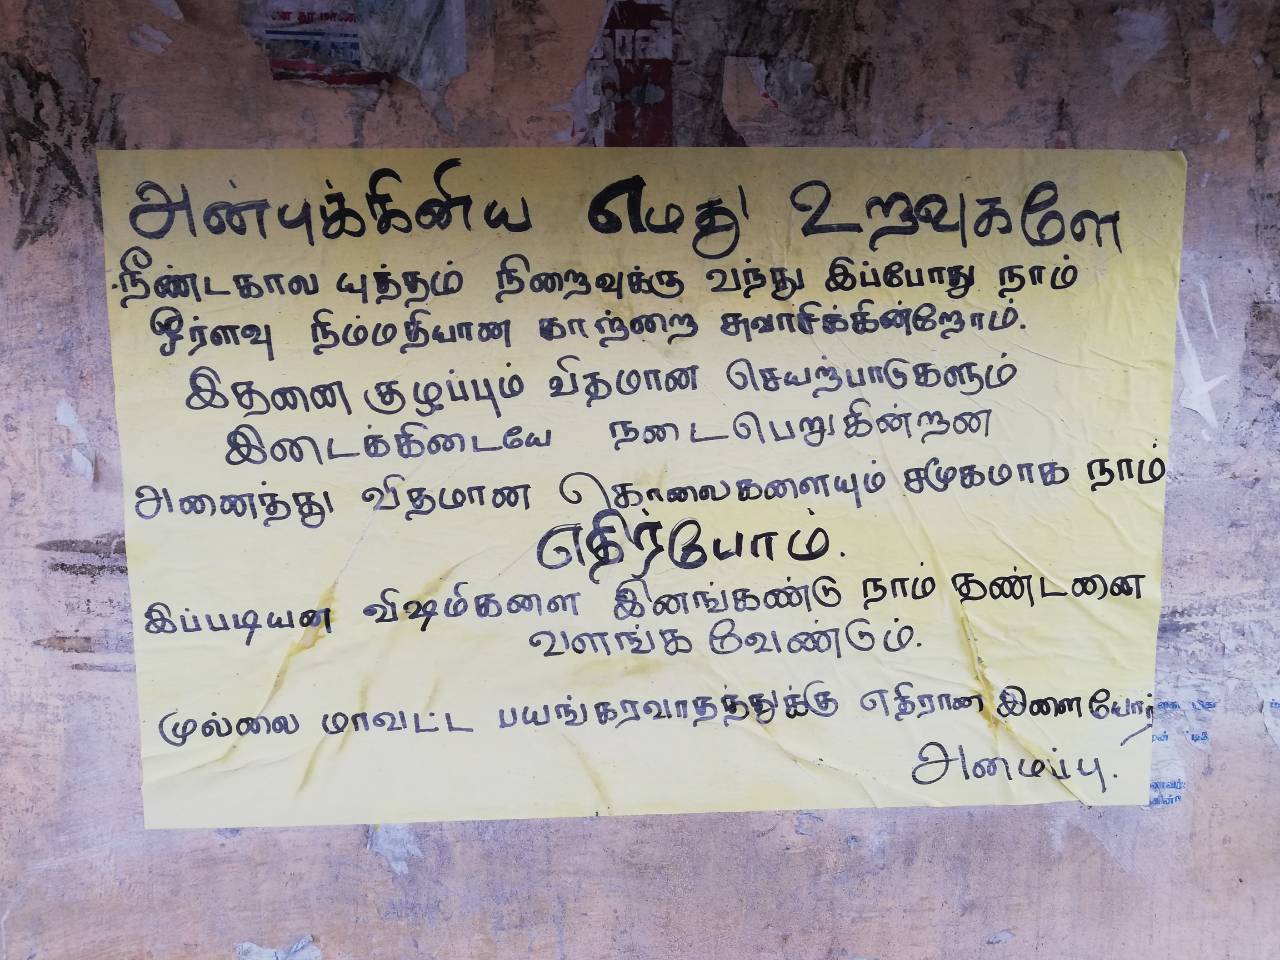 அன்புக்கினிய எமது உறவுகளே
நீண்டகால யுத்தம் நிறைவுக்கு வந்து இப்போது நாம்
ஓர்ளவு நிம்மதியான காற்றை சுவாசிக்கின்றோம்.
இதனை குழப்பும் விதமான செயற்பாடுகளும்
இடைக்கிடையே நடைபெறுகின்றன
அனைத்து விதமான கொலைகளையும் சமூகமாக நாம்
எதிர்போம்.
இப்படியன விஷமிகளை இனங்கண்டு நாம் தண்டனை
வளங்க வேண்டும்.
முல்லை மாவட்ட பயங்கரவாதத்துக்கு எதிரான இளையோர்
அமைப்பு.